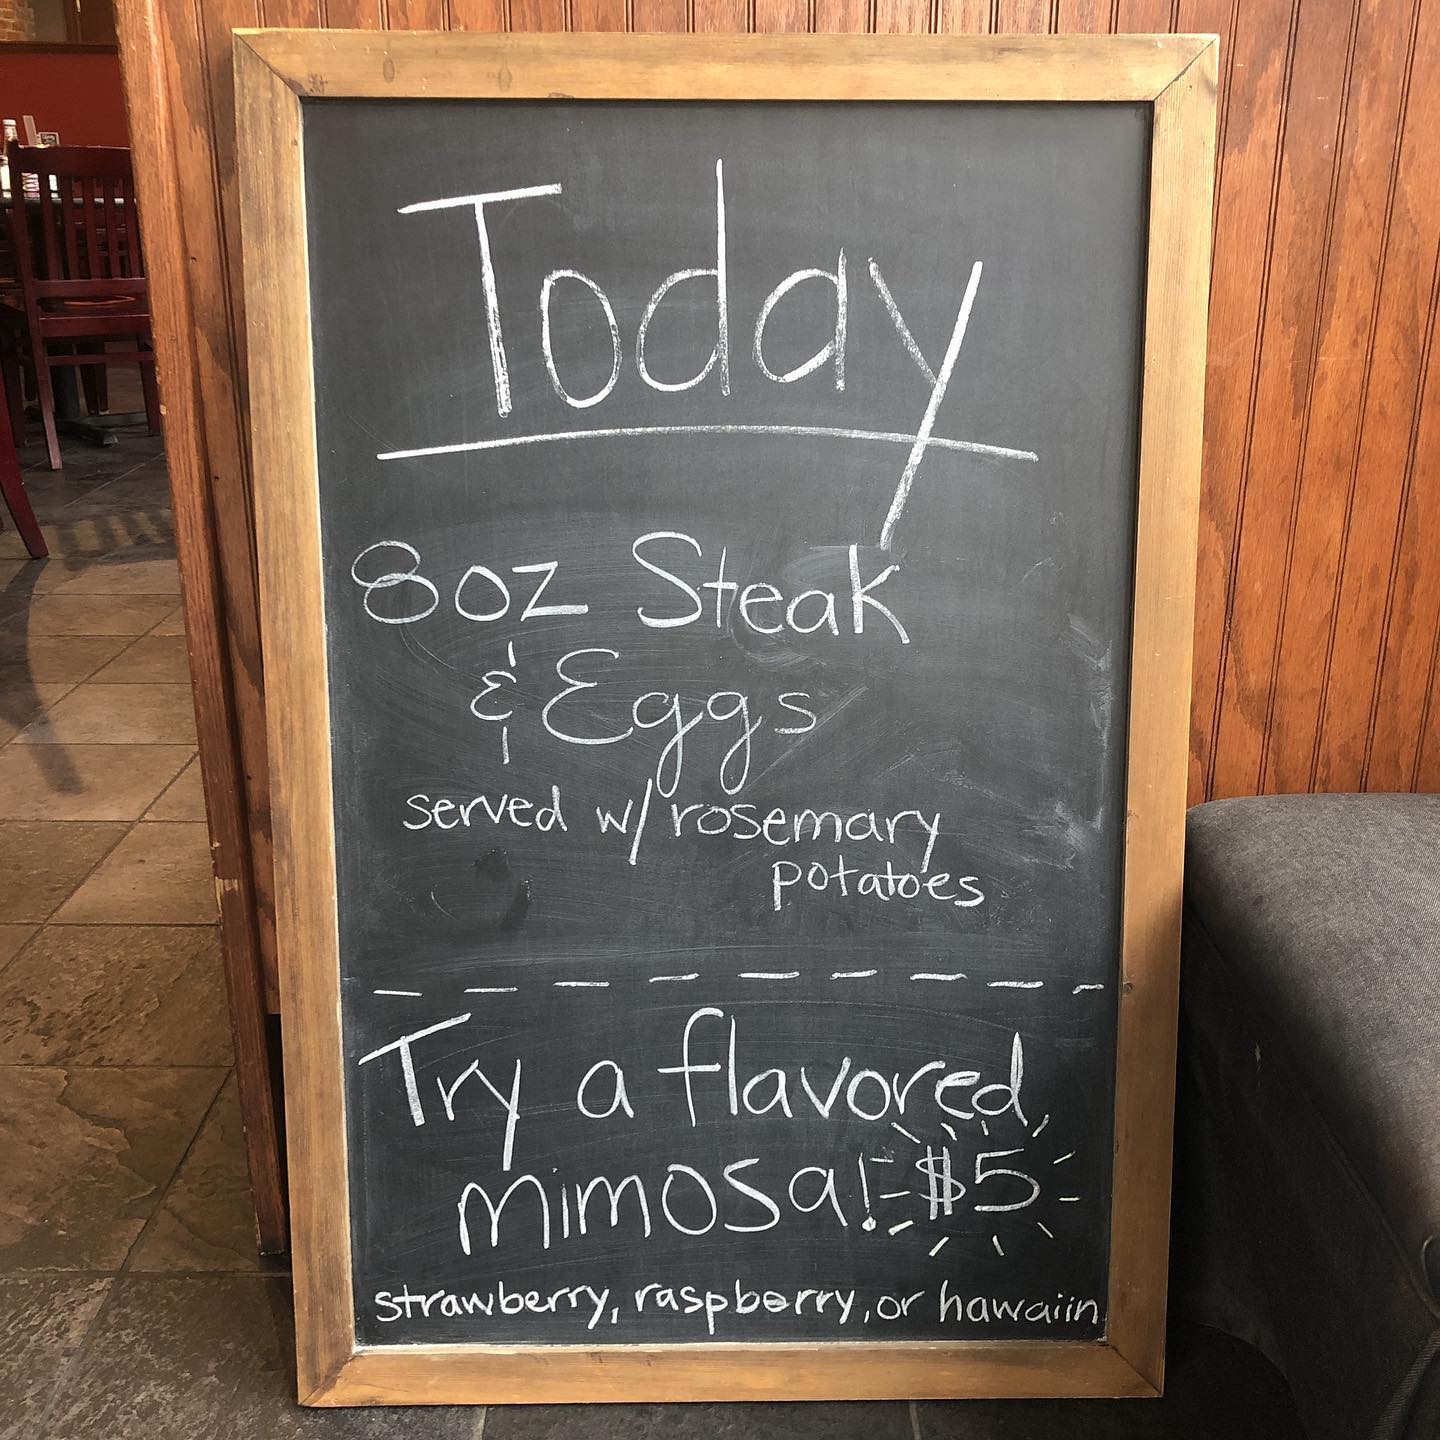 Today
8oz Steak
& Eggs
served w/ rosemary
potatoes
Try a flavored
mimosa! $5
strawberry, raspberry, or hawaiin